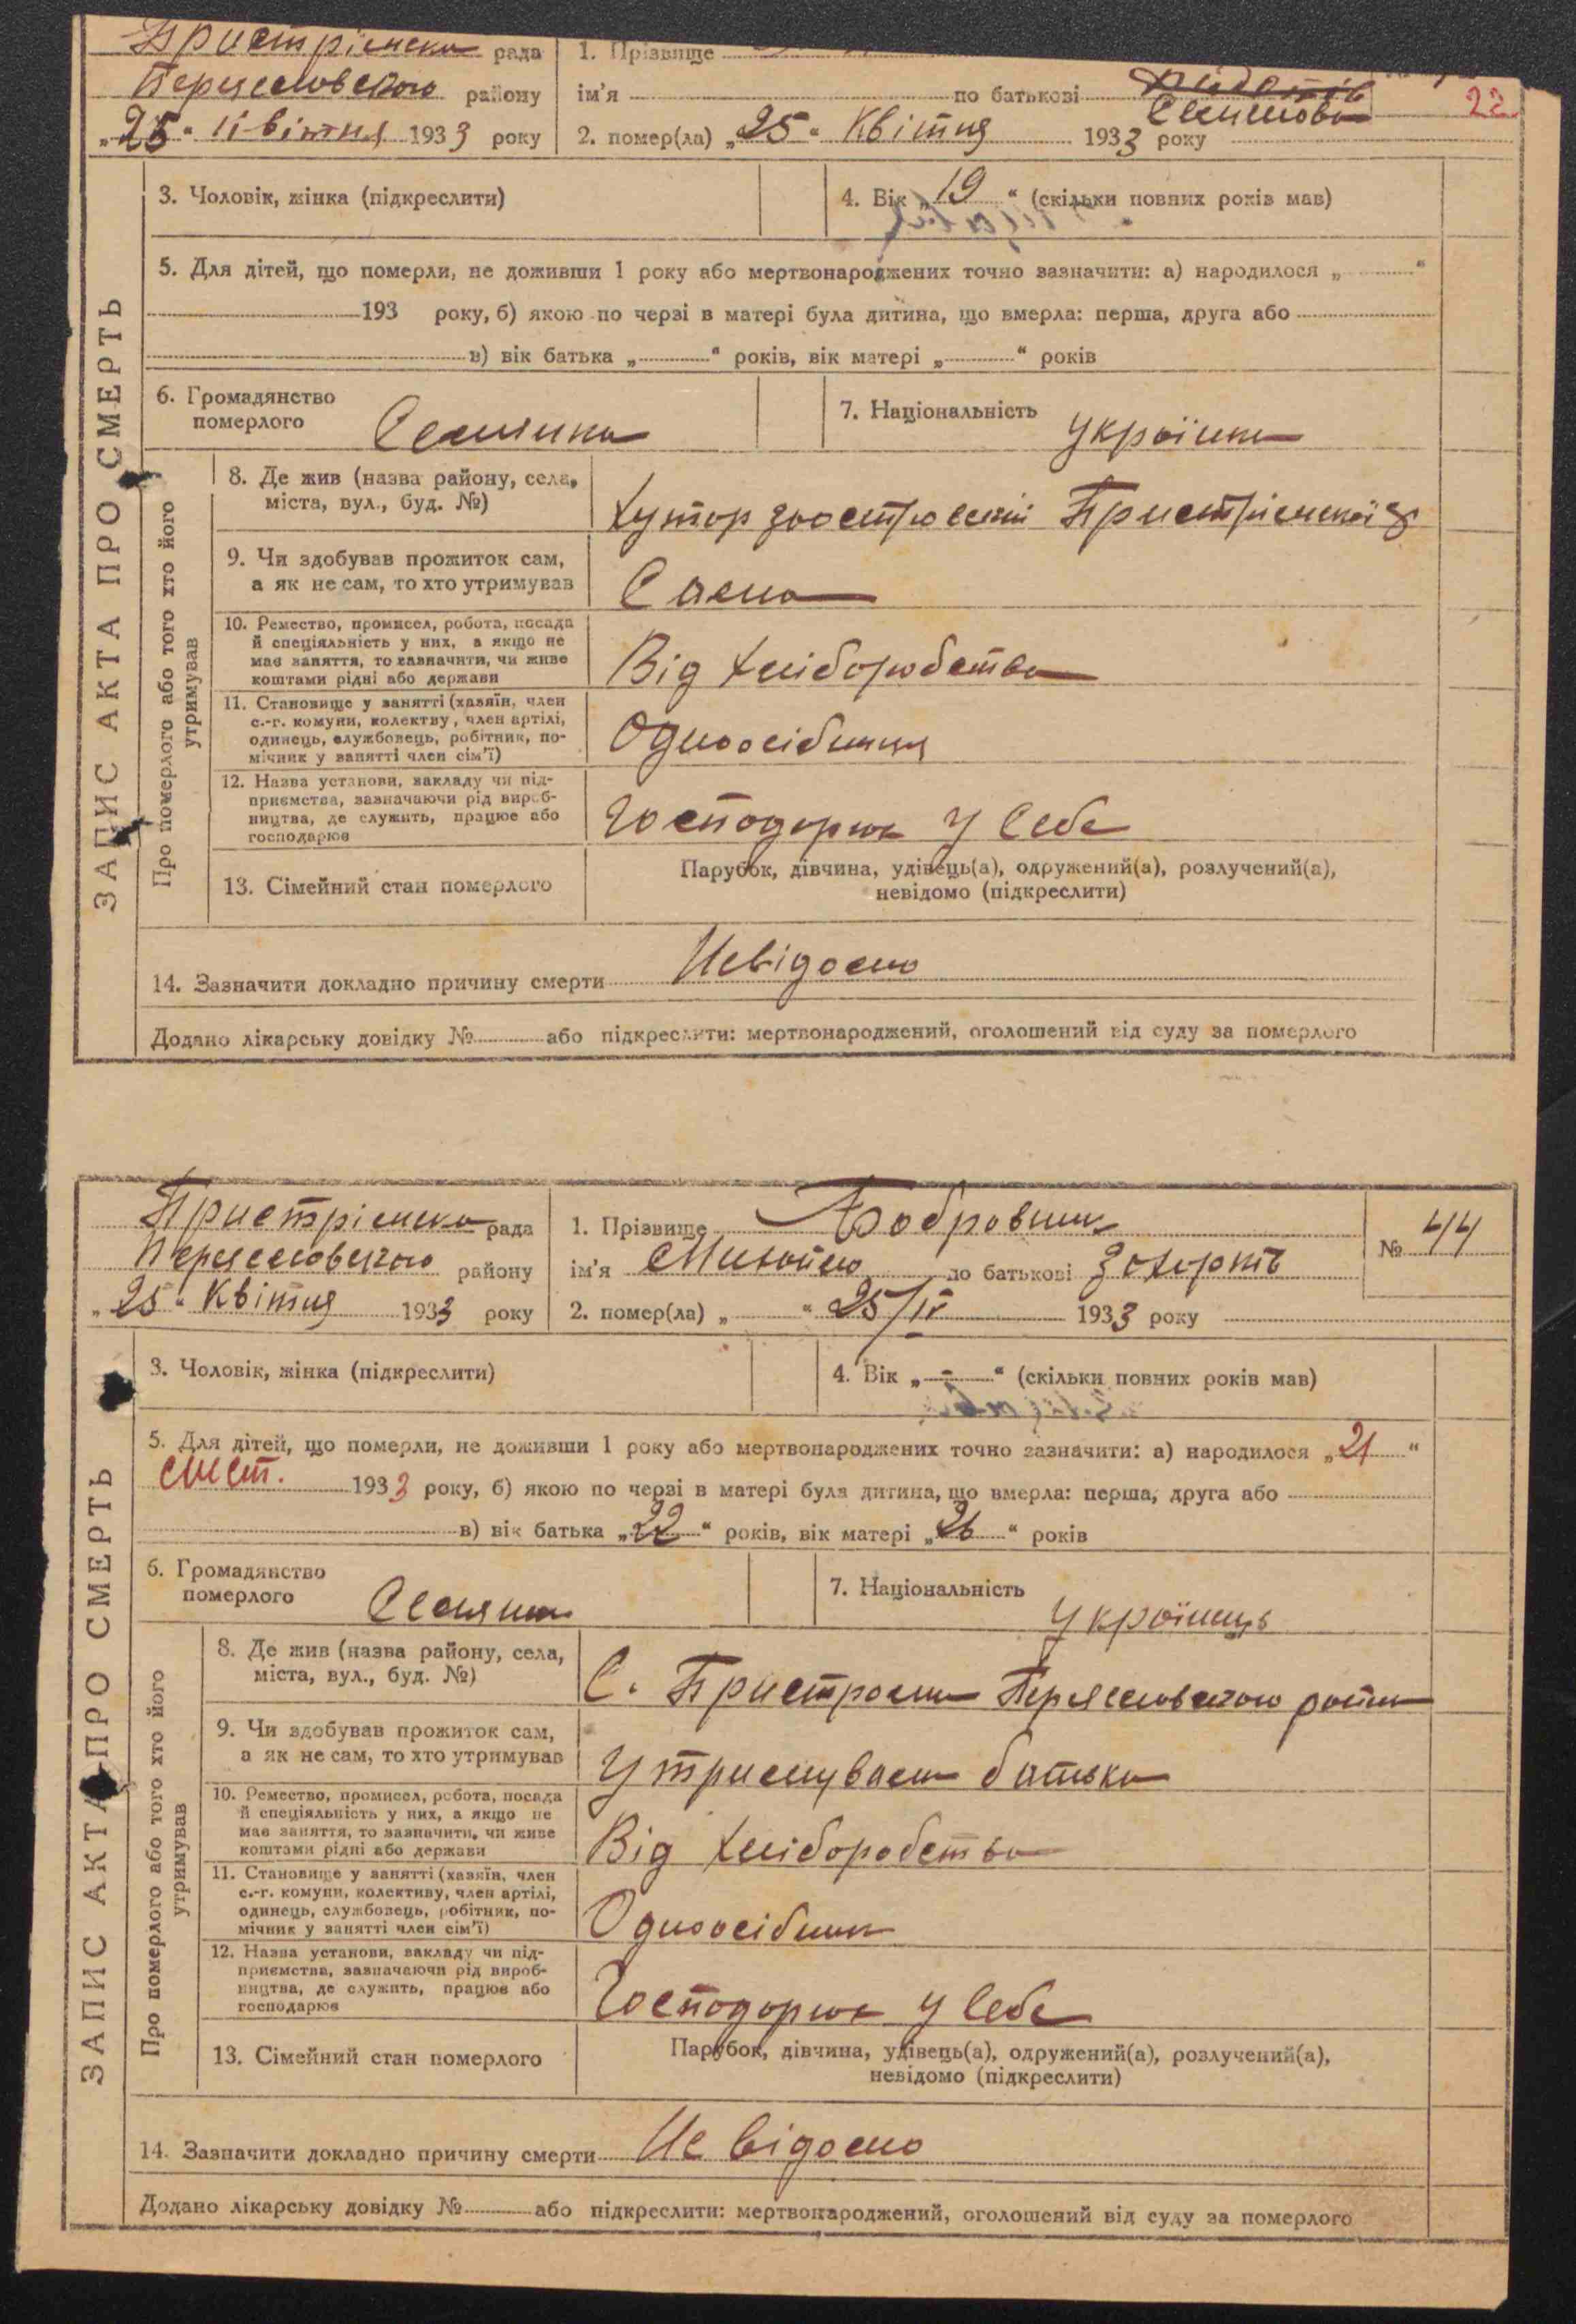 Пристрімска рада
Переяслов​ського району
„25“ Квітня 1933 року
1. Прізвище
ім'я по батькові
Семенова
22
2. помер(ла) „25“ Квітня 1933 року
3. Чоловік, жінка (підкреслити)
4. Вік „19“ (скільки повних років мав)
5. Для дітей, що померли, не доживши 1 року або мертвонароджених точно зазначити: а) народилося „ “
193 року, б) якою по черзі в матері була дитина, що вмерла: перша, друга або
в) вік батька „ “ років, вік матері „ “ років
6. Громадянство
померлого
Селянка
7. Національність
Українка
ЗАПИС АКТА ПРО СМЕРТЬ
Про померлого або того хто його
утримував
8. Де жив (назва району, села,
міста, вул., буд. №)
Хутор Заостровский Пристрімської
9. Чи здобував прожиток сам,
а як не сам, то хто утримував
Сама
10. Ремество, промисел, робота, посада
й спеціяльність у них, а якщо не
має заняття, то зазначити, чи живе
коштами рідні або держави
Від хліборобства
11. Становище у занятті (хазяїн, член
с.-г. комуни, колектву, член артілі,
одинець, службовець, робітник, по-
мічник у занятті член сім'ї)
Одноосібниця
12. Назва установи, закладу чи під-
приємства, зазначаючи рід вироб-
ництва, де служить, працює або
господарює
Господарює у себе
13. Сімейний стан померлого
Парубок, дівчина, удівець(а), одружений(а), розлучений(а),
невідомо (підкреслити)
14. Зазначити докладно причину смерти Невідомо
Додано лікарську довідку № або підкреслити: мертвонароджений, оголошений від суду за померлого
Пристрімска рада
Переясловського району
„25“ Квітня 1933 року
1. Прізвище Бобровник
ім'я Михайло по батькові Захарів
№ 44
2. помер(ла) „ “ 25/IV 1933 року
3. Чоловік, жінка (підкреслити)
4. Вік „-“ (скільки повних років мав)
5. Для дітей, що померли, не доживши 1 року або мертвонароджених точно зазначити: а) народилося „21“
1933 року, б) якою по черзі в матері була дитина, що вмерла: перша, друга або
в) вік батька „22“ років, вік матері „26“ років
6. Громадянство
померлого
Селянин
7. Національність
Українець
ЗАПИС АКТА ПРО СМЕРТЬ
Про померлого або того хто його
утримував
8. Де жив (назва району, села,
міста, вул., буд. №)
С. Пристроми Переясловского район
9. Чи здобував прожиток сам,
а як не сам, то хто утримував
Утримував батько
10. Ремество, промисел, робота, посада
й спеціяльність у них, а якщо не
має заняття, то зазначити, чи живе
коштами рідні або держави
Від хліборобства
11. Становище у занятті (хазяїн, член
с.-г. комуни, колективу, член артілі,
одинець, службовець, робітник, по-
мічник у занятті член сім'ї)
Одноосібник
12. Назва установи, закладу чи під-
приємства, зазначаючи рід вироб-
ництва, де служить, працює або
господарює
Господарює у себе
13. Сімейний стан померлого
Парубок, дівчина, удівець(а), одружений(а), розлучений(а),
невідомо (підкреслити)
14. Зазначити докладно причину смерти Не відомо
Додано лікарську довідку № або підкреслити: мертвонароджений, оголошений від суду за померлого